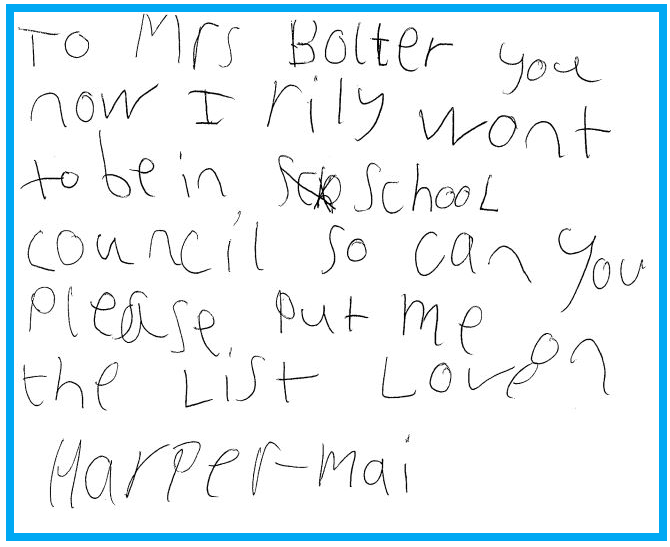 To Mrs Bolter you
now I rily wont
to be in School
council so can you
Please. Put me on
the List Love
Harper-mai